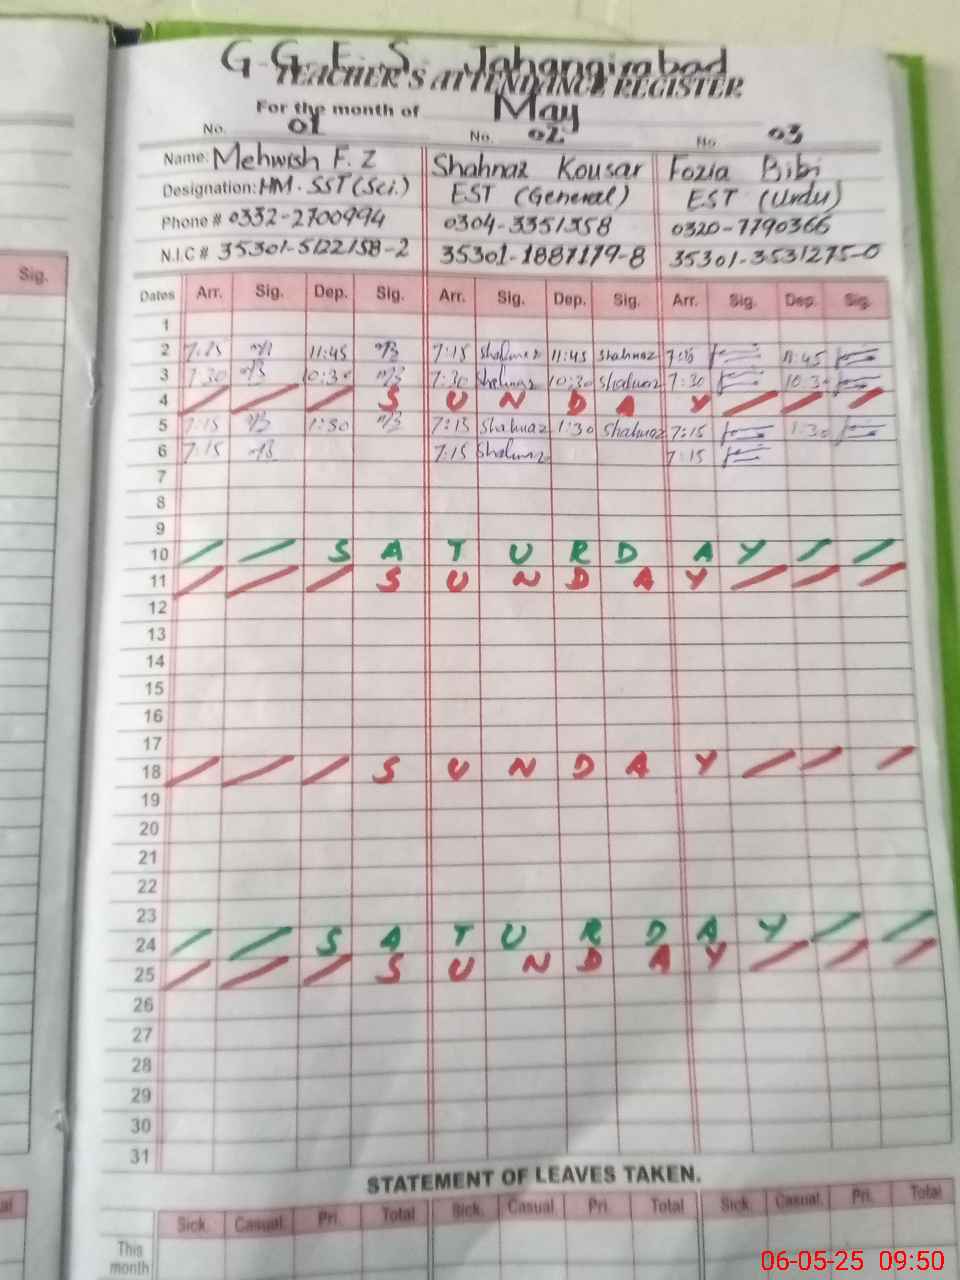 G. G. E. S. Jahangirabad
TEACHER'S ATTENDANCE REGISTER
For the month of May
No. 01 No. 02 No. 03
Name: Mehwish F. Z Shahnaz Kousar Fozia Bibi
Designation: HM. SST (Sci.) EST (General) EST (Urdu)
Phone # 0332-2700994 0304-3351358 0320-7790366
N.I.C # 35301-5122158-2 35301-1887179-8 35301-3531275-0
Sig.
Dates Arr. Sig. Dep. Sig. Arr. Sig. Dep. Sig. Arr. Sig. Dep. Sig.
1
2 7:15 11:45 7:15 Shahnaz 11:45 Shahnaz 7:15 11:45
3 7:30 10:30 7:30 Shahnaz 10:30 Shahnaz 7:30 10:30
4 S U N D A Y
5 7:15 1:30 7:15 Shahnaz 1:30 Shahnaz 7:15 1:30
6 7:15 7:15 Shahnaz 7:15
7
8
9
10 S A T U R D A Y
11 S U N D A Y
12
13
14
15
16
17
18 S U N D A Y
19
20
21
22
23
24 S A T U R D A Y
25 S U N D A Y
26
27
28
29
30
31
STATEMENT OF LEAVES TAKEN.
Sick. Casual. Pri. Total Sick. Casual. Pri. Total Sick. Casual. Pri. Total
This
month
06-05-25 09:50